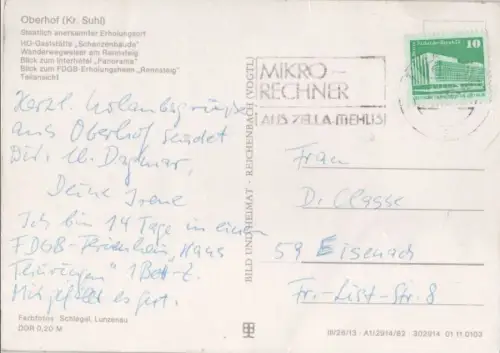 Oberhof (Kr. Suhl)
Staatlich anerkannter Erholungsort
HO-Gaststätte „Schanzenbaude“
Wanderwegweiser am Rennsteig
Blick zum Interhotel „Panorama“
Blick zum FDGB-Erholungsheim „Rennsteig“
Teilansicht
Herzl. Urlaubsgrüße
aus Oberhof sendet
Dir, U. Dagmar,
Deine Irene
Ich bin 14 Tage in einem
FDGB-Ferienheim „Haus
Thüringen“ 1 Bett-Z.
Mir gefällt es gut.
Farbfotos: Schlegel, Lunzenau
DDR 0,20 M
BILD UND HEIMAT · REICHENBACH (VOGTL)
MIKRO-
RECHNER
AUS ZELLA-MEHLIS
10
Frau
D. Classe
59 Eisenach
Fr.-List-Str. 8
III/26/13 · A1/2914/82 302914 01 11 0103